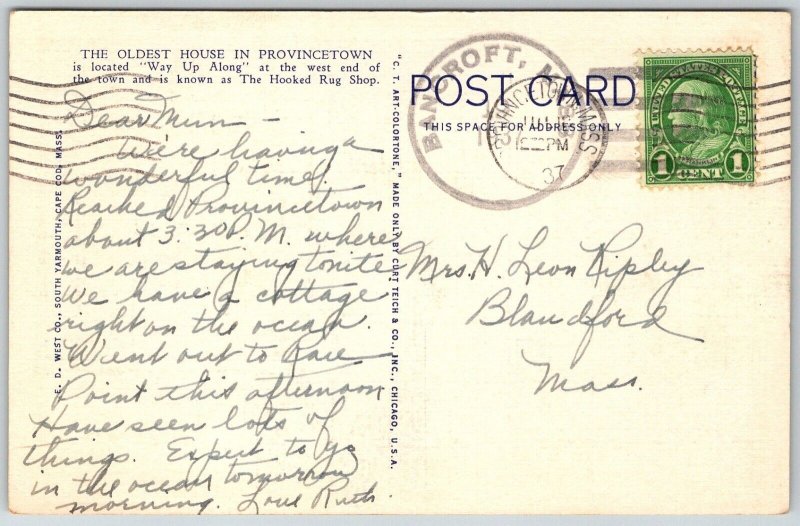 THE OLDEST HOUSE IN PROVINCETOWN
is located "Way Up Along" at the west end of
the town and is known as The Hooked Rug Shop.
Dear Mum –
We're having a
wonderful time.
Reached Provincetown
about 3:30 P.M. where
we are staying tonite
We have a cottage
right on the ocean.
Went out to Race
Point this afternoon
Have seen lots of
things. Expect to go
in the ocean tomorrow
morning. Love Ruth.
E. D. WEST CO., SOUTH YARMOUTH, CAPE COD, MASS.
"C. T. ART-COLORTONE," MADE ONLY BY CURT TEICH & CO., INC., CHICAGO, U.S.A.
POST CARD
THIS SPACE FOR ADDRESS ONLY
BANCROFT,
PROVINCETOWN, MASS
PM
37
UNITED STATES POSTAGE
FRANKLIN
1 CENT 1
Mrs. H. Leon Ripley
Blandford
Mass.